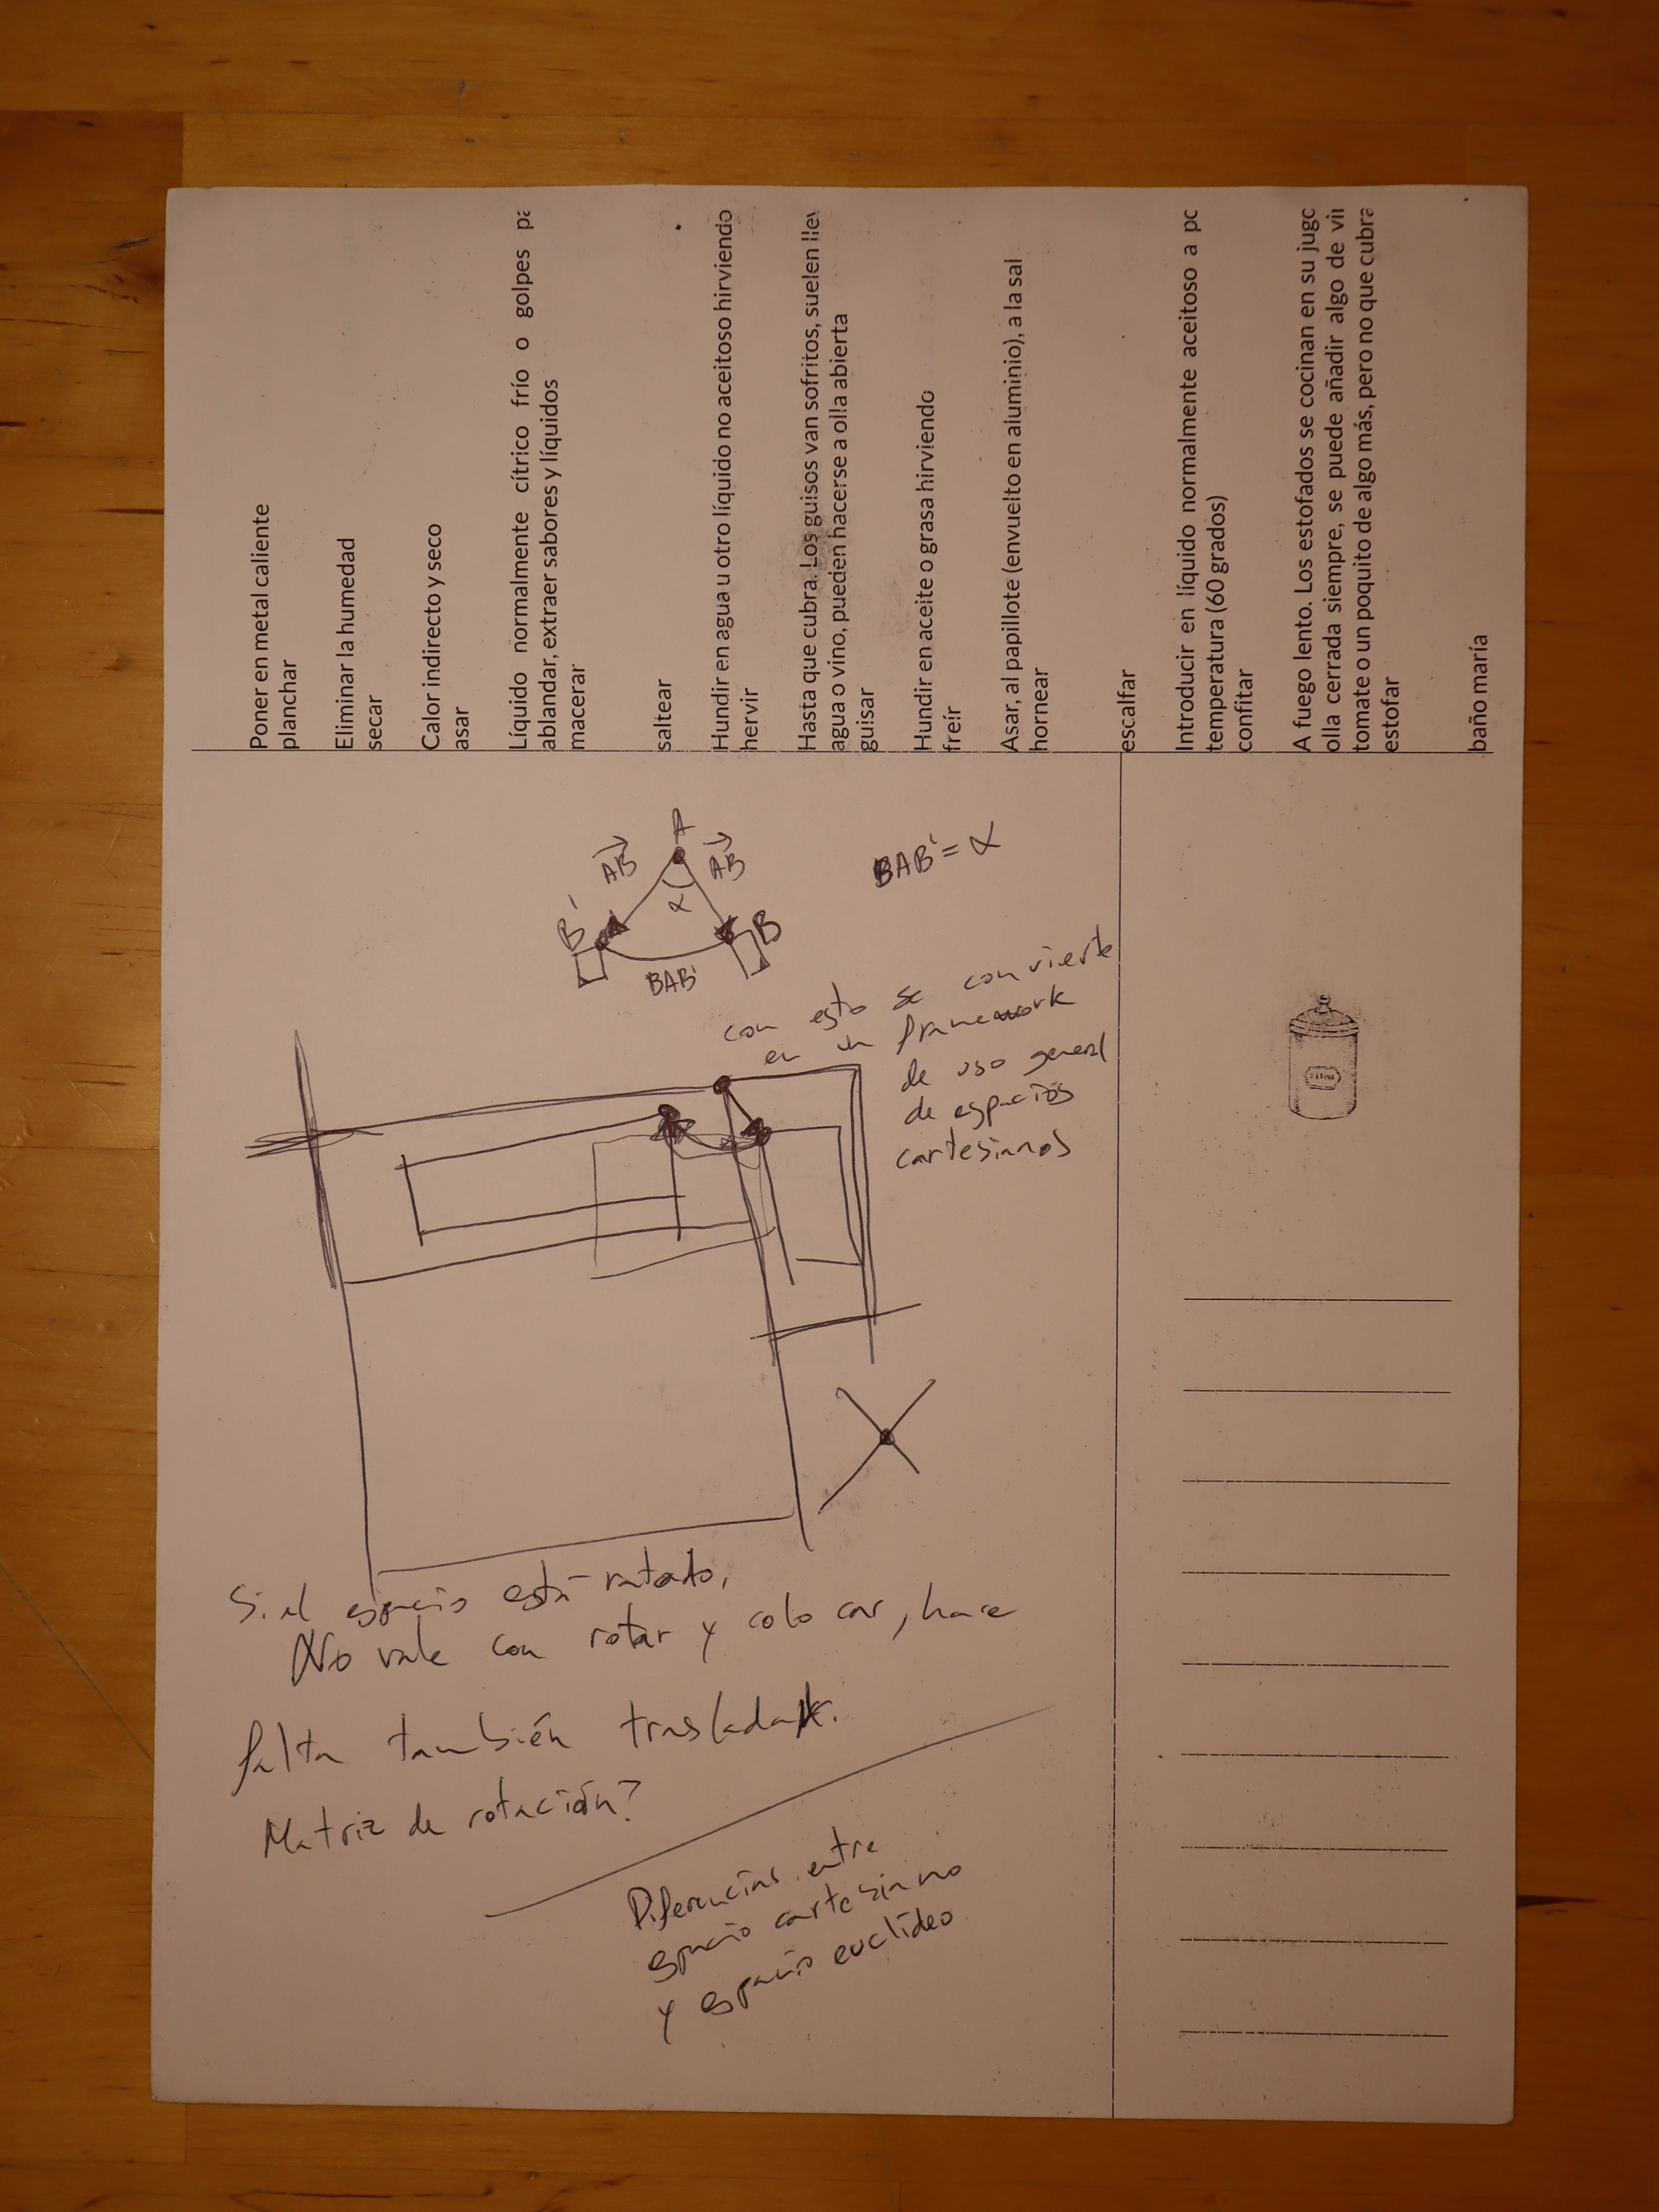 Poner en metal caliente
planchar
Eliminar la humedad
secar
Calor indirecto y seco
asar
Líquido normalmente cítrico frío o golpes pa
ablandar, extraer sabores y líquidos
macerar
saltear
Hundir en agua u otro líquido no aceitoso hirviendo
hervir
Hasta que cubra. Los guisos van sofritos, suelen llev
agua o vino, pueden hacerse a olla abierta
guisar
Hundir en aceite o grasa hirviendo
freír
Asar, al papillote (envuelto en aluminio), a la sal
hornear
escalfar
Introducir en líquido normalmente aceitoso a po
temperatura (60 grados)
confitar
A fuego lento. Los estofados se cocinan en su jugo
olla cerrada siempre, se puede añadir algo de vin
tomate o un poquito de algo más, pero no que cubra
estofar
baño maría
A
AB
AB
α
B'
B
BAB'
BAB' = α
con esto se convierte
en un framework
de uso general
de espacios
cartesianos
Si el espacio está rotado,
No vale con rotar y colocar, hace
falta también trasladar.
Matriz de rotación?
Diferencias entre
espacio cartesiano
y espacio euclídeo